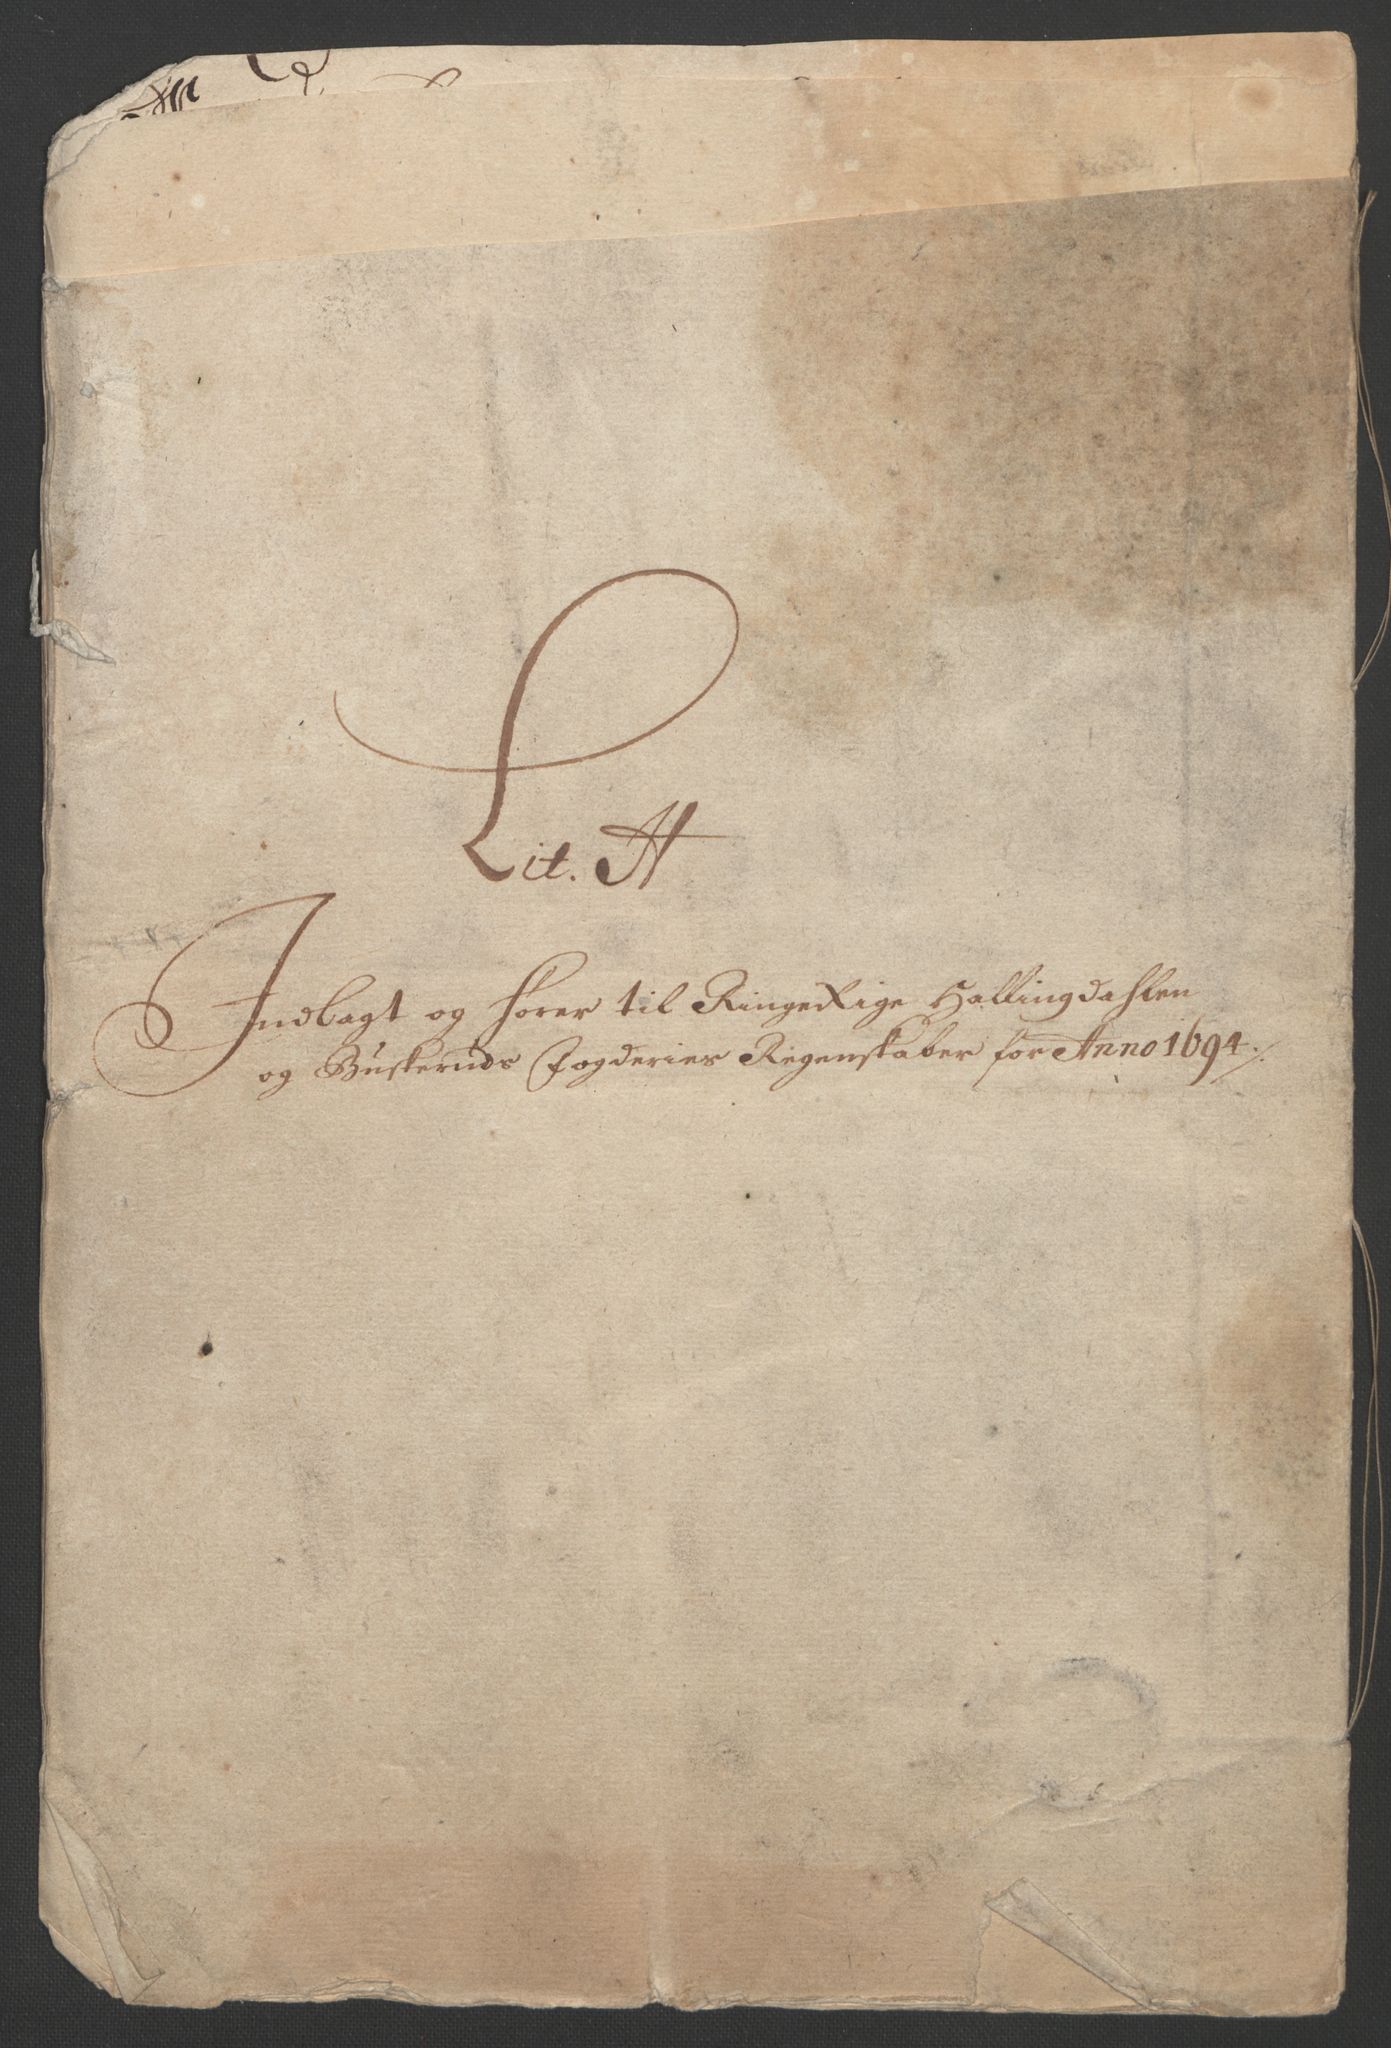 Lit. A
Indlagt og hører til Ringerige Hallingdahlen
og Buskeruds Fogderies Regenskaber for Anno 1694 ./